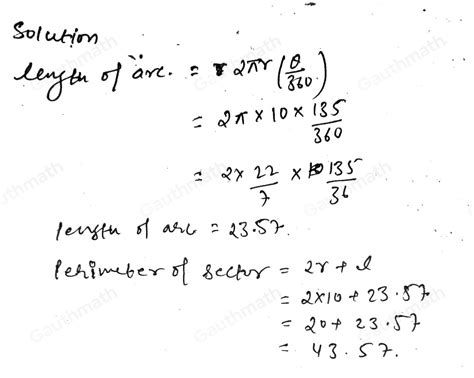 Solution
length of arc. = 2πr (θ/360)
= 2π × 10 × 135/360
= 2 × 22/7 × 135/36
length of arc = 23.57.
Perimeter of sector = 2r + l
= 2×10 + 23.57
= 20 + 23.57
= 43.57.
Gauthmath